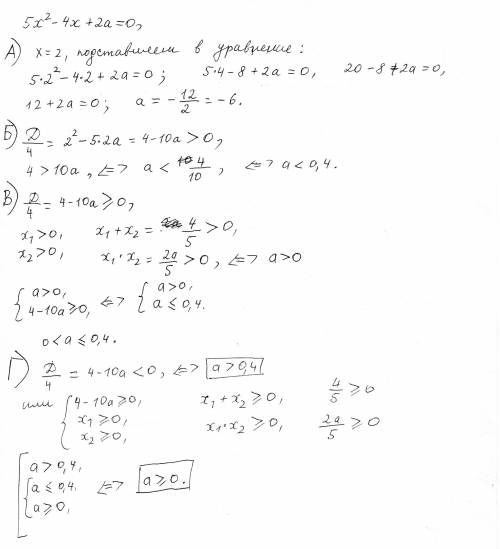 5x² - 4x + 2a = 0,
А) x = 2, подставляем в уравнение:
5·2² - 4·2 + 2a = 0; 5·4 - 8 + 2a = 0, 20 - 8 + 2a = 0,
12 + 2a = 0; a = -12/2 = -6.
Б) Д/4 = 2² - 5·2a = 4 - 10a > 0,
4 > 10a, <=> a < 4/10, <=> a < 0,4.
В) Д/4 = 4 - 10a ≥ 0,
x₁ > 0, x₁ + x₂ = 4/5 > 0,
x₂ > 0, x₁·x₂ = 2a/5 > 0, <=> a > 0
{ a > 0, <=> { a > 0,
4 - 10a ≥ 0, a ≤ 0,4.
0 < a ≤ 0,4.
Г) Д/4 = 4 - 10a < 0, <=> a > 0,4
или { 4 - 10a ≥ 0, x₁ + x₂ ≥ 0, 4/5 ≥ 0
x₁ ≥ 0, x₁·x₂ ≥ 0, 2a/5 ≥ 0
x₂ ≥ 0,
[ a > 0,4,
{ a ≤ 0,4, <=> a ≥ 0.
a ≥ 0,